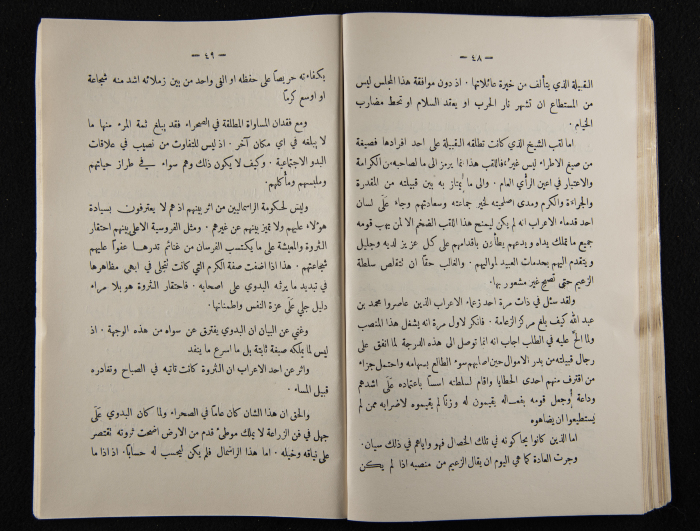 — ٤٨ —
القبيلة الذي يتألف من خيرة عائلاتها . اذ دون موافقة هذا المجلس ليس
من المستطاع ان تشهر نار الحرب او يعقد السلام او تحط مضارب
الخيام .
اما لقب الشيخ الذي كانت تطلقه القبيلة على احد افرادها فصيغة
من صيغ الاطراء ليس غير فاللقب هذا انما يرمز الى ما لصاحبه من الكرامة
والاعتبار في اعين الرأي العام . والى ما يمتاز به بين قبيلته من المقدرة
والجراءة والكرم ومدى اصليته لخير جماعته وسعادتهم وجاء على لسان
احد قدماء الاعراب انه لم يكن ليمنح هذا اللقب الضخم الا لمن يهب قومه
جميع ما تملك يداه ويدعهم يطأون باقدامهم على كل عزيز لديه وجليل
ويتقدم اليهم بخدمات العبيد لمواليهم . والغالب حقًا ان تتقلص سلطة
الزعيم حتى تصبح غير مشعور بها
ولقد سئل في ذات مرة احد زعماء الاعراب الذين عاصروا محمد بن
عبد الله كيف بلغ مركز الزعامة . فانكر لاول مرة انه يشغل هذا المنصب
ولما الح عليه في الطلب اجاب انه انما توصل الى هذه الدرجة لما انفق على
رجال قبيلته من بدر الاموال حين اصابهم سوء الطالع بسهامه واحتمل جزاء
من اقترف منهم احدى الخطايا واقام لسلطته اسسًا باعتماده على اشدهم
وداعة وجعل قومه بفعاله يقيمون له وزنًا لم يقيموه لاضرابه ممن لم
يستطيعوا ان يضاهوه
اما الذين كانوا يحاكونه في تلك الخصال فهو واياهم في ذلك سيان .
وجرت العادة كما هي اليوم ان يقال الزعيم من منصبه اذا لم يكن
— ٤٩ —
بكفاءته حريصًا على حفظه او الفى واحد من بين زملائه اشد منه شجاعة
او اوسع كرمًا
ومع فقدان المساواة المطلقة في الصحراء فقد يبلغ ثمة المرء منها ما
لا يبلغه في اي مكان آخر . اذ ليس للتفاوت من نصيب في علاقات
البدو الاجتماعية . وكيف لا يكون ذلك وهم سواء في طراز حياتهم
وملبسهم ومأكلهم.
وليس لحكومة الراسماليين من اثر بينهم اذ هم لا يعترفون بسيادة
هؤلاء عليهم ولا تميز بينهم عن غيرهم . ومثل الفروسية الاعلى بينهم احتقار
الثروة والمعيشة على ما يكتسب الفرسان من غنائم تدرها عفوًا عليهم
شجاعتهم . هذا اذا اضفت صفة الكرم التي كانت تتجلى في ابهى مظاهرها
في تبديد ما يرثه البدوي على اصحابه . فاحتقار الثروة هو بلا مراء
دليل جلي على عزة النفس واطمئنانها .
وغني عن البيان ان البدوي يفترق عن سواه من هذه الوجهة . اذ
ليس لما يملكه صبغة ثابتة بل ما اسرع ما ينفد
واثر عن احد الاعراب ان الثروة كانت تاتيه في الصباح وتغادره
قبيل المساء .
والحق ان هذا الشان كان عامًا في الصحراء ولما كان البدوي على
جهل في فن الزراعة لا يملك موطئ قدم من الارض اضحت ثروته تقتصر
على نياقه وخيله . اما هذا الراسمال فلم يكن ليحسب له حسابًا . اذ اذا ما